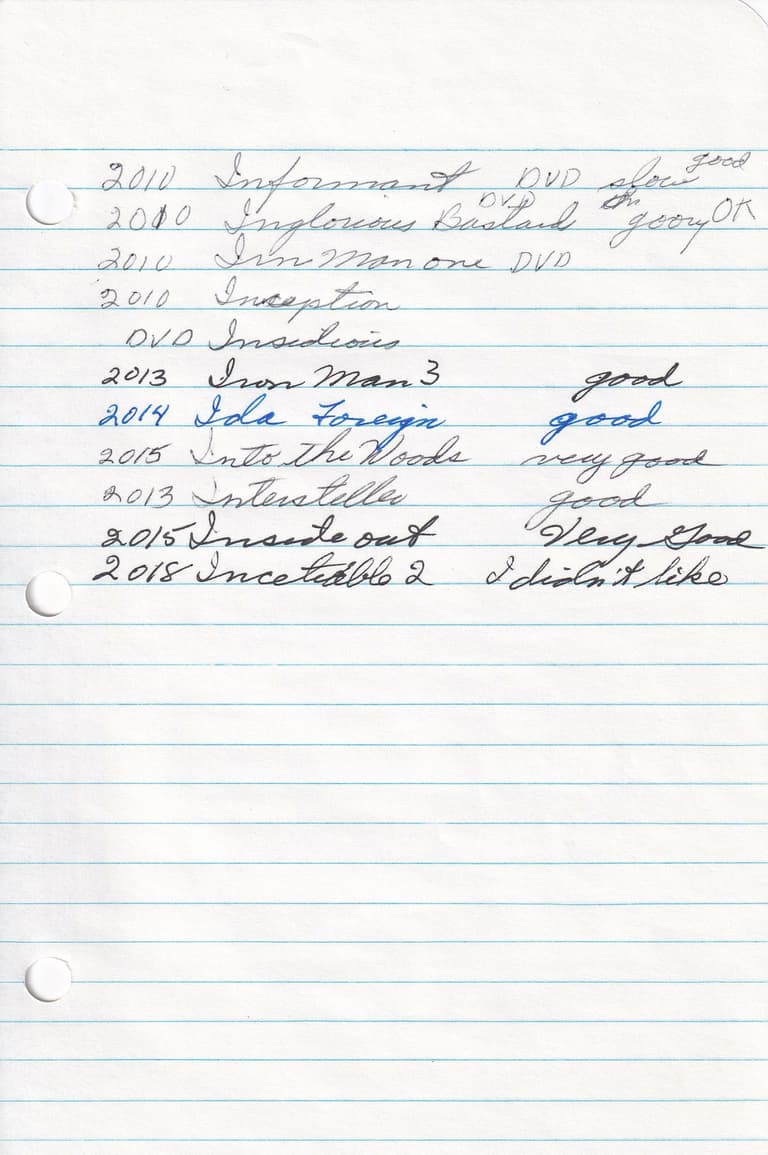 2010 Informant DVD slow good
2010 Inglorious Bastard DVD goory OK
2010 Irn Man one DVD
2010 Inception
DVD Insidious
2013 Iron Man 3 good
2014 Ida Foreign good
2015 Into the Woods very good
2013 Insterstellar good
2015 Inside out Very Good
2018 Incetible 2 I didn't like